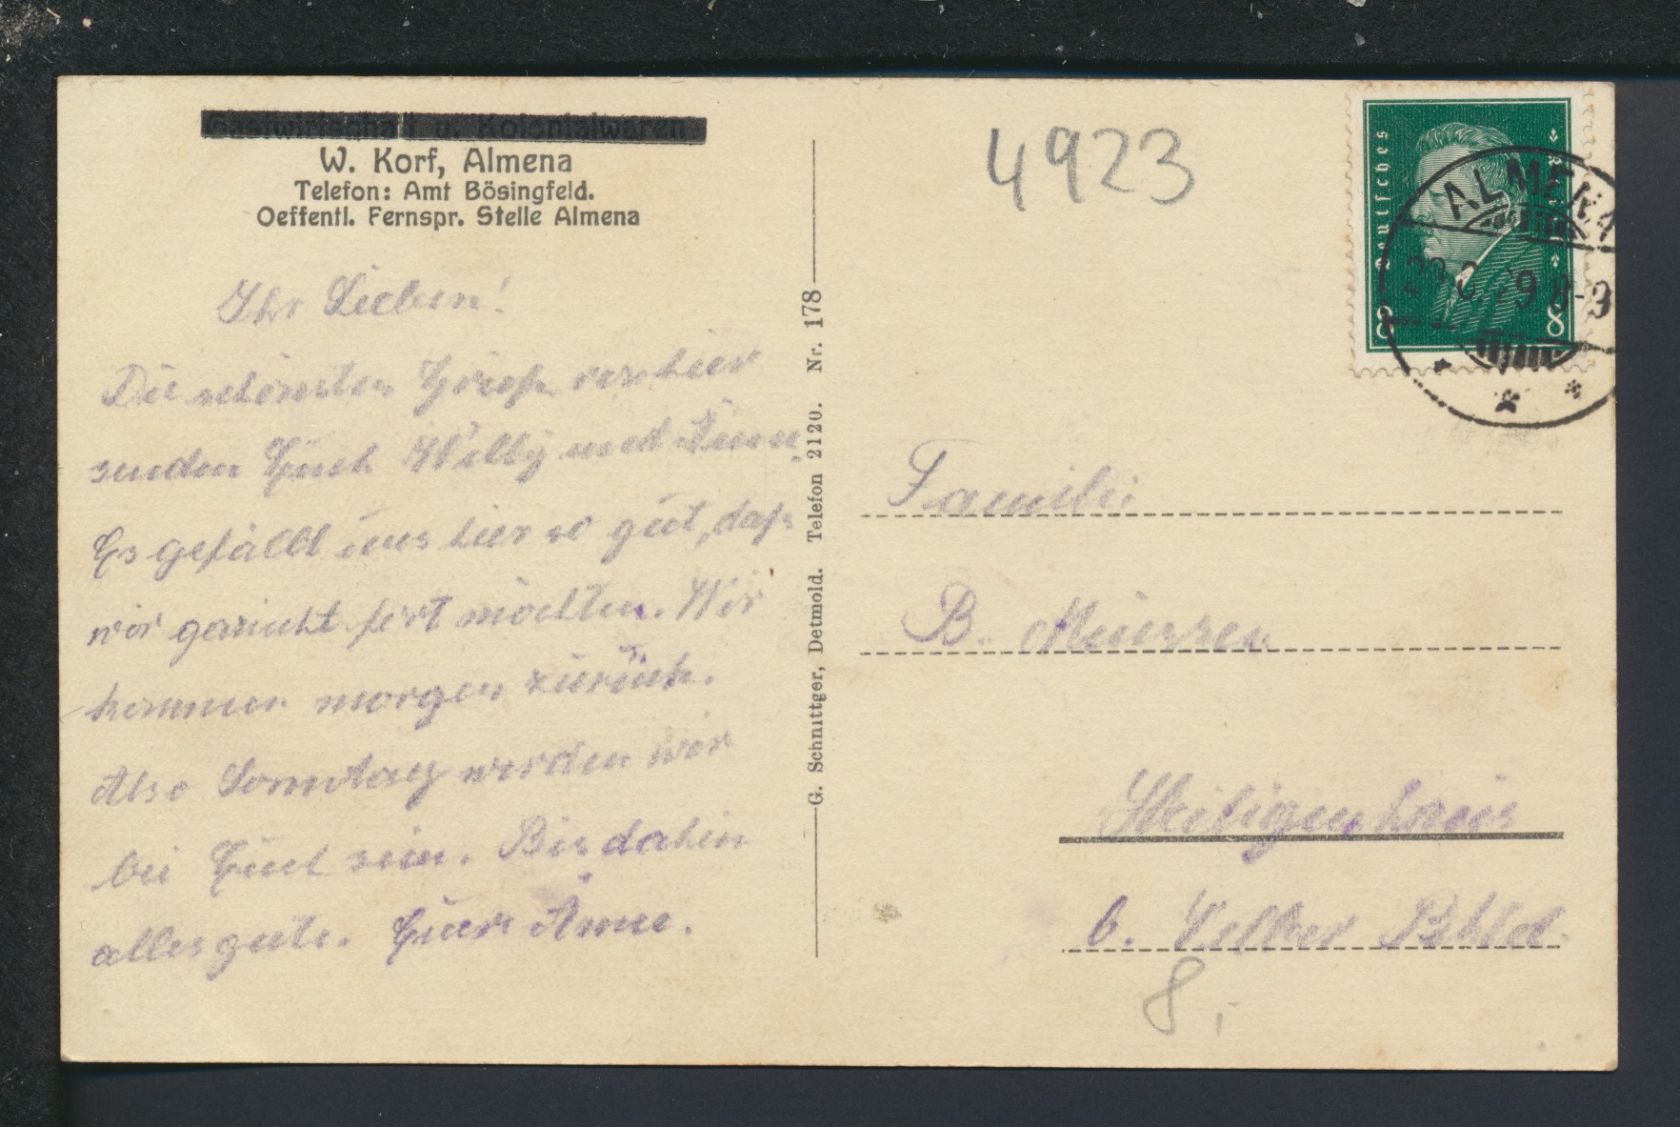 Gastwirtschaft u. Kolonialwaren
W. Korf, Almena
Telefon: Amt Bösingfeld.
Oeffentl. Fernspr. Stelle Almena
Ihr Lieben!
Die schönsten Grüße von hier
senden Euch Willy und
Es gefällt uns hier so gut, daß
wir garnicht fort möchten. Wir
kommen morgen zurück.
Also Sonntag werden wir
bei Euch sein. Bis dahin
alles gute. Eure Änne.
G. Schnittger, Detmold. Telefon 2120. Nr. 178
4923
Deutsches
8 8
ALMENA
8-9
Familie
B.
Heiligenhaus
b. Velbert Rhld.
8,-